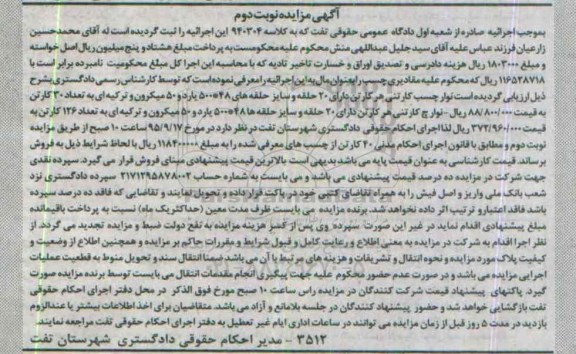 آگهی مزایده نوبت دوم
بموجب اجرائیه صادره از شعبه اول دادگاه عمومی حقوقی تفت که به کلاسه ۹۴۰۳۰۴ این اجرائیه را ثبت گردیده است له آقای محمدحسین
زارعیان فرزند عباس علیه آقای سید جلیل عبداللهی منش محکوم علیه محکومست به پرداخت مبلغ هشتاد و پنج میلیون ریال اصل خواسته
و مبلغ ۱۸۰۳۰۰۰ ریال هزینه دادرسی و تصدیق اوراق و خسارت تاخیر تادیه که با محاسبه این اجرا کل مبلغ محکومیت نامبرده برابر است با
۱۱۶۵۲۸۷۱۸ ریال که محکوم علیه مقادیری چسب را بعنوان مال به این اجرائیه را معرفی نموده است که توسط کارشناس رسمی دادگستری بشرح
ذیل ارزیابی گردیده است نوار چسب کارتنی هر کارتن دارای ۲۰ حلقه و سایز حلقه های ۴۸*۵۰۰ یارد و ۵۰ میکرون و ترکیه ای به تعداد ۳۰ کارتن
به قیمت ۸۸/۸۰۰/۰۰۰ ریال - نوار چ کارتنی هر کارتن دارای ۲۰ حلقه و سایز حلقه ها ۴۸*۵۰۰ یارد و ۵۰ میکرون و ترکیه ای به تعداد ۱۲۶ کارتن به
قیمت ۳۷۲/۹۶۰/۰۰۰ ریال لذا اجرای احکام حقوقی دادگستری شهرستان تفت در نظر دارد در مورخ ۹۵/۹/۱۷ ساعت ۱۰ صبح از طریق مزایده
نوبت دوم و مطابق با قانون اجرای احکام مدنی ۴۰ کارتن از چسب های معرفی شده را به مبلغ ۱۱۸۴۰۰۰۰۰ ریال با لحاظ شرایط ذیل به فروش
برساند قیمت کارشناسی به عنوان قیمت پایه می باشد بدیهی است بالاترین قیمت پیشنهادی مبنای فروش قرار می گیرد. سپرده نقدی
جهت شرکت در مزایده ده درصد قیمت پیشنهادی می باشد و می بایست به شماره حساب ۲۱۷۱۲۹۵۸۷۸۰۰۲ سپرده دادگستری نزد
شعب بانک ملی واریز و اصل فیش را به همراه تقاضای کتبی خود در پاکت قرار داده و تحویل نمایند و تقاضایی که فاقد ده درصد سپرده
باشد فاقد اعتبار و ترتیب اثر داده نخواهد شد. برنده مزایده می بایست ظرف مدت معین (حداکثر یک ماه) نسبت به پرداخت باقیمانده
مبلغ پیشنهادی اقدام نماید در غیر این صورت سپرده وی پس از کسر هزینه مزایده به نفع دولت ضبط و مزایده تجدید می گردد. از
نظر اجرا اقدام به شرکت در مزایده به معنی اطلاع و رعایت کامل و قبول شرایط و مقررات حاکم بر مزایده و همچنین اطلاع از وضعیت و
کیفیت پلاک مورد مزایده و نحوه انتقال و تشریفات و هزینه های مرتبط با آن می باشد ضمنا انتقال سند و تحویل منوط به قطعیت عملیات
اجرایی مزایده می باشد و در صورت عدم حضور محکوم علیه جهت پیگیری انجام مقدمات انتقال می بایست توسط برنده مزایده صورت
گیرد. پاکتهای پیشنهاد قیمت شرکت کنندگان در مزایده راس ساعت ۱۰ صبح مورخ فوق الذکر در محل دفتر اجرای احکام حقوقی
تفت بازگشایی خواهد شد و حضور پیشنهاد کنندگان در جلسه بلامانع و آزاد می باشد. متقاضیان برای اخذ اطلاعات بیشتر یا عندالزوم
بازدید در مدت ۵ روز قبل از زمان مزایده می توانند در ساعات اداری ایام غیر تعطیل به دفتر اجرای احکام حقوقی تفت مراجعه نمایند.
۳۵۱۲ - مدیر احکام حقوقی دادگستری شهرستان تفت